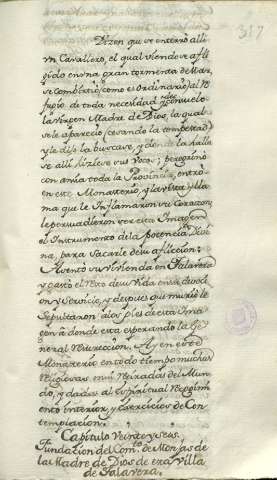 317
Dizen que se enterró alli
vn Cavallero, el qual viendose afli-
gido en vna gran tormenta de Mar,
se
de toda necesidad
la Virgen Madre de Dios, la qual
se le apareció, cesando la tempestad
y le dijo la buscase, y donde la halla
se alli hiziese sus votos; peregrinó
con ansia toda la Provincia, entró
en este Monasterio, y la vista y lla
ma que le Inflamaron su Corazon,
le persuadieron ser esta Imagen
el Instrumento de la potencia Divi
na, para sacarle de su afliccion:
Avento su vivienda en Talavera
y gastó el resto de su vida en su devoci
on y servicio, y despues que murió le
Sepultaron a los pies de esta Ima
gen a donde esta esperando la Ge-
neral Resurreccion. Ay en este
Monasterio en todo tiempo muchas
Religiosas mui retiradas del Mun-
do, y dadas al espiritual recogim
ento interior, y exercicios de Con-
templacion.
Capitulo Veinte y seis
Fundacion del Comto. de Monjas de
la Madre de Dios de esta Villa
de Talavera.